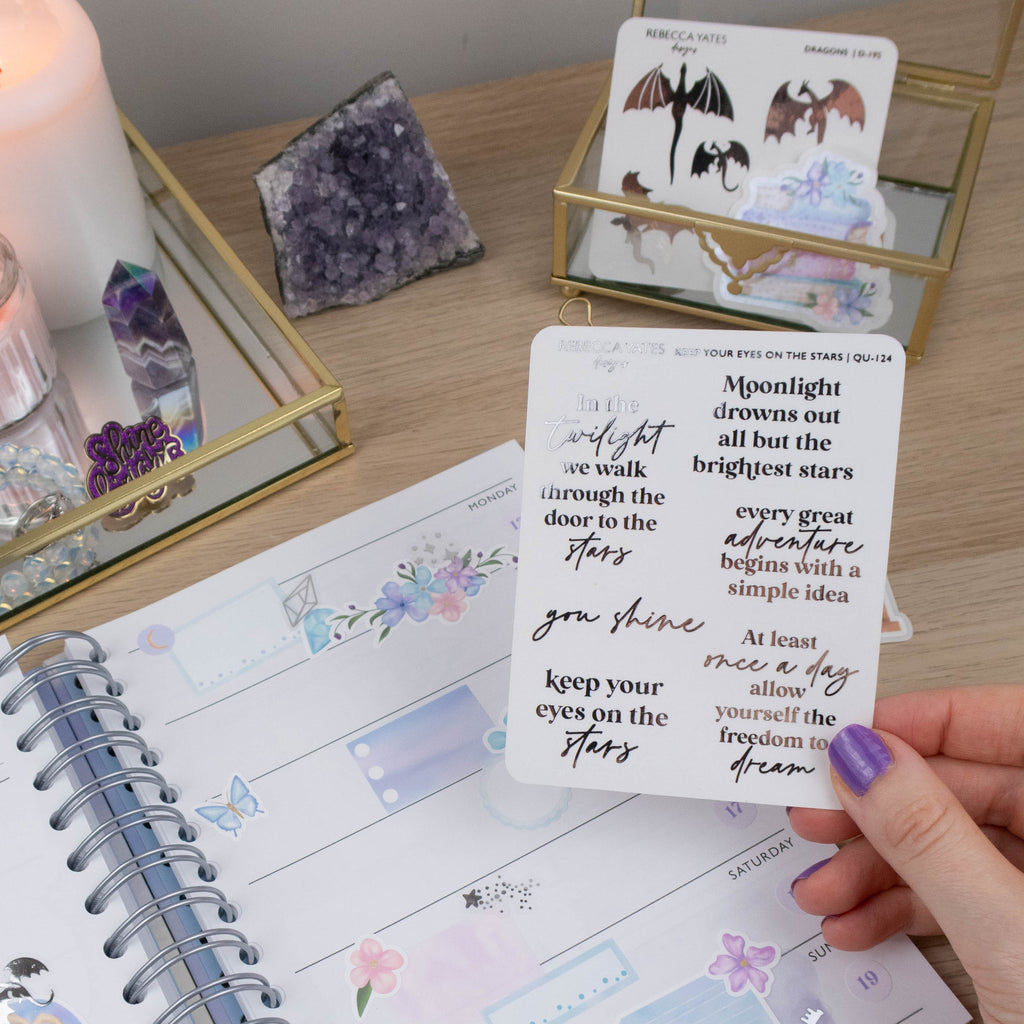 REBECCA YATES
designs
DRAGONS | D-195
REBECCA YATES
designs
KEEP YOUR EYES ON THE STARS | QU-124
In the
twilight
we walk
through the
door to the
stars
you shine
keep your
eyes on the
stars
Moonlight
drowns out
all but the
brightest stars
every great
adventure
begins with a
simple idea
At least
once a day
allow
yourself the
freedom to
dream
Shine
MONDAY
17
SATURDAY
19